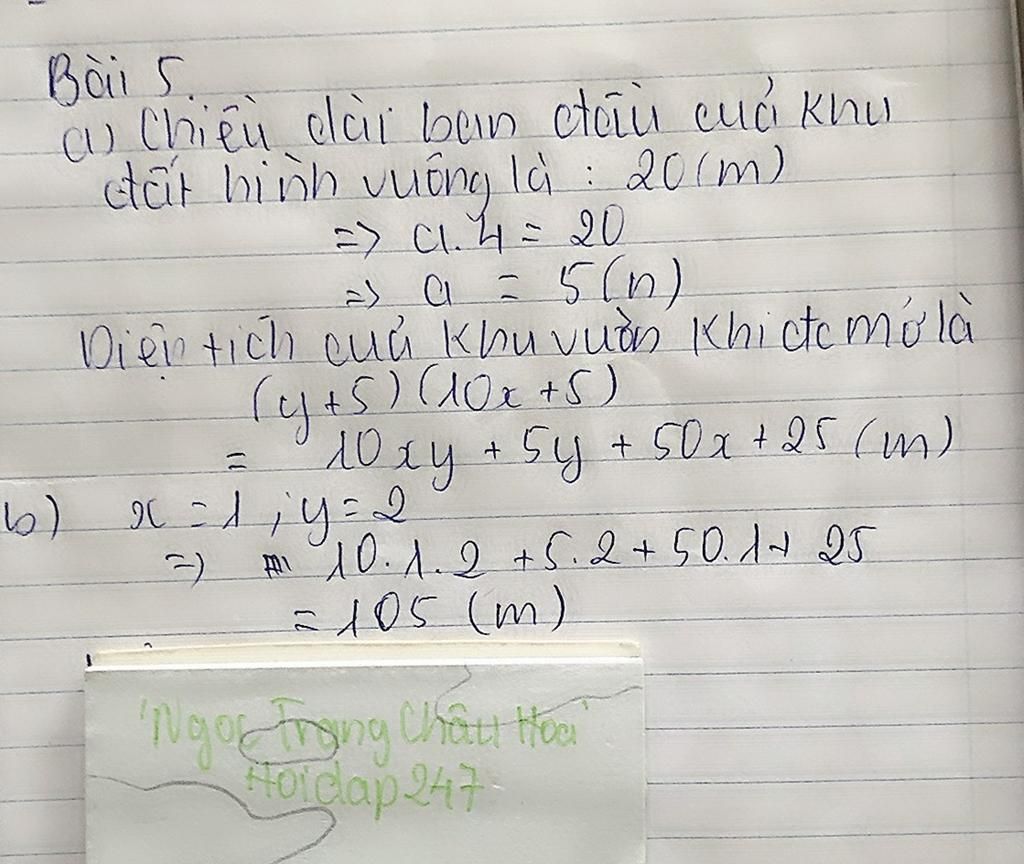 Bài 5.
a) Chiều dài ban đầu cuả khu
đất hình vuông là : 20(m)
=> a.4 = 20
=> a = 5(n)
Diện tích cuả khu vườn khi đc mở là
(y+5)(10x+5)
= 10xy + 5y + 50x + 25 (m)
b) x = 1 ; y = 2
=> 10.1.2 + 5.2 + 50.1+ 25
= 105 (m)
'Ngọc Trang Châu Hoa'
Hoidap247